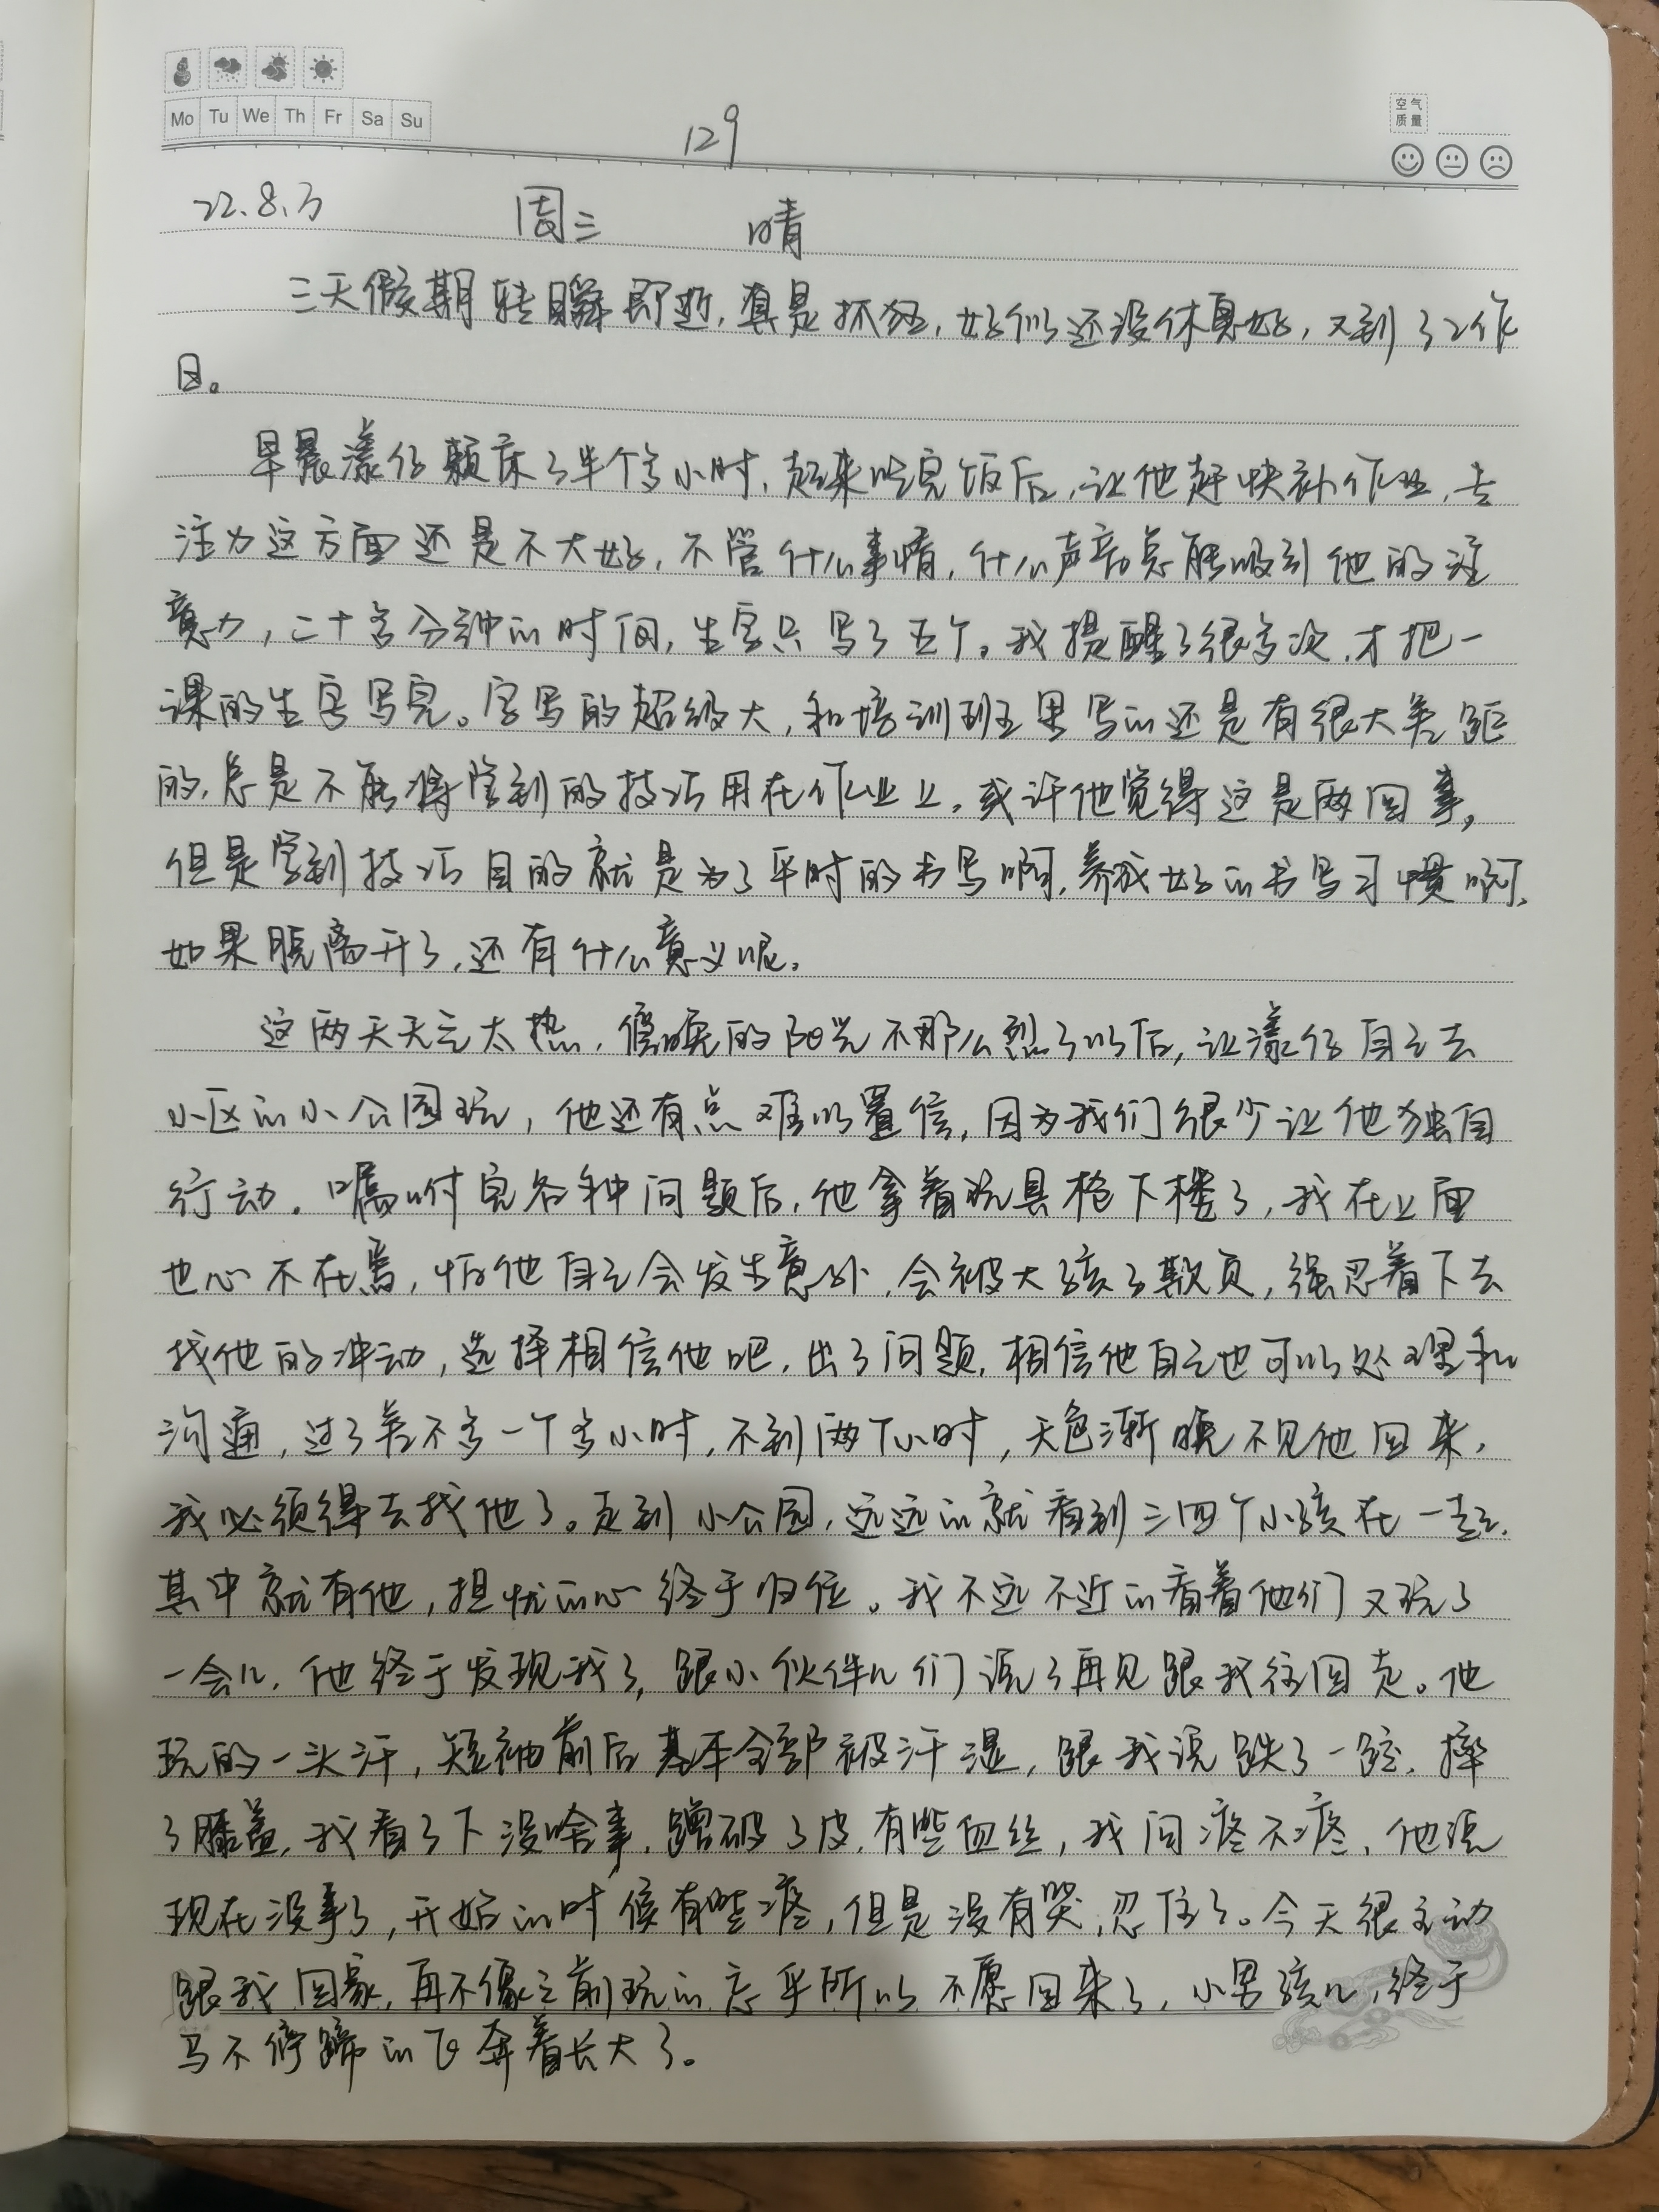 Mo Tu We Th Fr Sa Su
129
空气
质量
22.8.3 周三 晴
三天假期转瞬即逝,真是抓狂,好似还没休息好,又到了工作
日。
早晨漾仔赖床了半个多小时,起来吃完饭后,让他赶快补作业,专
注力这方面还是不太好,不管什么事情,什么声音总能吸引他的注
意力,二十多分钟的时间,生字只写了五个。我提醒了很多次,才把一
课的生字写完。字写的超级大,和培训班里写的还是有很大差距
的,总是不能将学到的技巧用在作业上,或许他觉得这是两回事,
但是学到技巧目的就是为了平时的书写啊,养成好的书写习惯啊,
如果脱离开了,还有什么意义呢。
这两天天气太热,傍晚的阳光不那么烈了以后,让漾仔自己去
小区的小公园玩,他还有点难以置信,因为我们很少让他独自
行动。嘱咐完各种问题后,他拿着玩具枪下楼了,我在上面
也心不在焉,怕他自己会发生意外,会被大孩子欺负,强忍着下去
找他的冲动,选择相信他吧,出了问题,相信他自己也可以处理和
沟通,过了差不多一个多小时,不到两个小时,天色渐晚不见他回来,
我必须得去找他了。走到小公园,远远的就看到三四个小孩在一起,
其中就有他,担忧的心终于归位。我不远不近的看着他们又玩了
一会儿,他终于发现我了,跟小伙伴儿们说了再见跟我往回走。他
玩的一头汗,短袖前后基本全部被汗湿,跟我说跌了一跤,摔
了膝盖,我看了下没啥事,蹭破了皮,有些血丝,我问疼不疼,他说
现在没事了,开始的时候有些疼,但是没有哭,忍住了。今天很主动
跟我回家,再不像之前玩的忘乎所以不愿回来了,小男孩儿,终于
马不停蹄的飞奔着长大了。